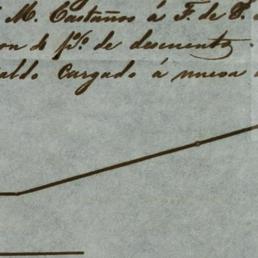 M. Castaños á F. de P.
on to p%. de descuento.
aldo cargado á nueva